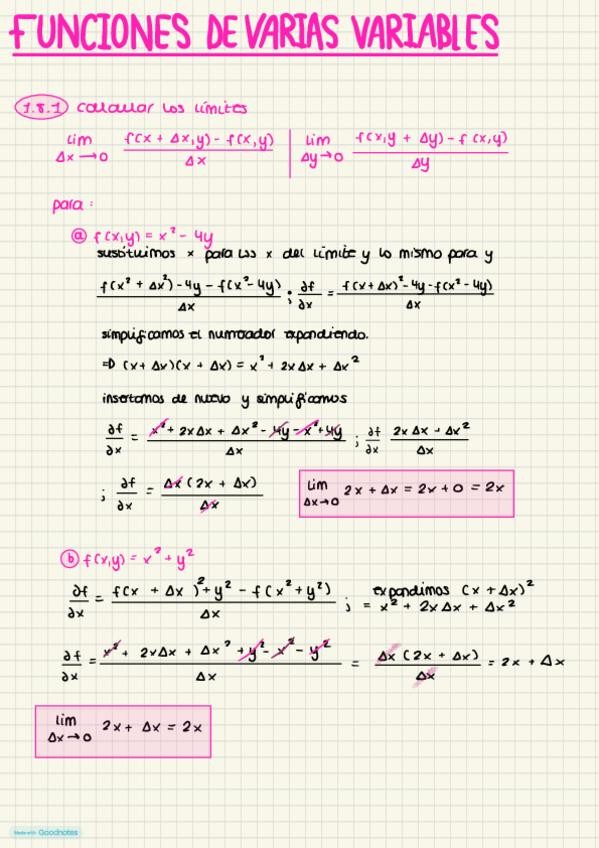 FUNCIONES DE VARIAS VARIABLES
1.8.1 calcular los límites
lim Δx→0 f(x + Δx, y) - f(x, y) / Δx | lim Δy→0 f(x, y + Δy) - f(x, y) / Δy
para:
ⓐ f(x, y) = x² - 4y
sustituimos x para las x del límite y lo mismo para y
f(x² + Δx²) - 4y - f(x² - 4y) / Δx ; ∂f/∂x = f(x + Δx)² - 4y - f(x² - 4y) / Δx
simplificamos el numerador expandiendo.
⇒ (x + Δx)(x + Δx) = x² + 2xΔx + Δx²
insertamos de nuevo y simplificamos
∂f/∂x = x² + 2xΔx + Δx² - 4y - x² + 4y / Δx ; ∂f/∂x 2xΔx + Δx² / Δx
; ∂f/∂x = Δx (2x + Δx) / Δx
lim Δx→0 2x + Δx = 2x + 0 = 2x
ⓑ f(x, y) = x² + y²
∂f/∂x = f(x + Δx)² + y² - f(x² + y²) / Δx ; expandimos (x + Δx)²
= x² + 2xΔx + Δx²
∂f/∂x = x² + 2xΔx + Δx² + y² - x² - y² / Δx = Δx (2x + Δx) / Δx = 2x + Δx
lim Δx→0 2x + Δx = 2x
Made with Goodnotes